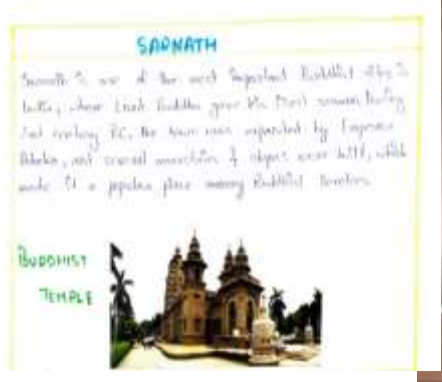 SARNATH
Sarnath is one of the most important Buddhist sites in
India, where Lord Buddha gave his first sermon. During
3rd century BC, the town was expanded by Emperor
Ashoka, and several monasteries & stupas were built, which
made it a popular place among Buddhist travelers.
BUDDHIST
TEMPLE